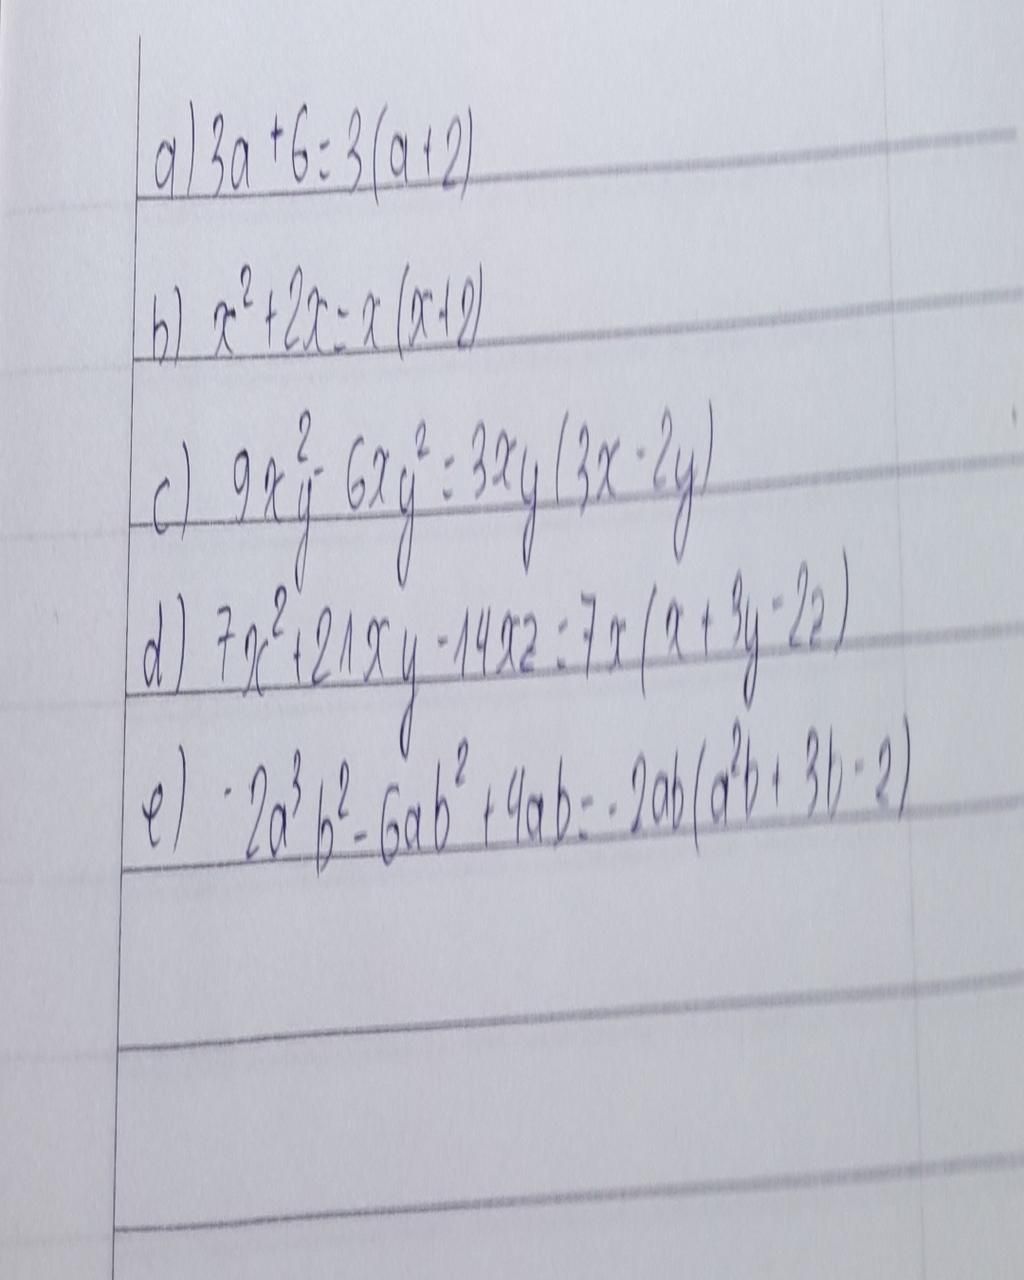 a) 3a + 6 = 3(a + 2)
b) x² + 2x = x(x + 2)
c) 9x²y - 6xy² = 3xy(3x - 2y)
d) 7x² + 21xy - 14xz = 7x(x + 3y - 2z)
e) -2a³b² - 6ab² + 4ab = -2ab(a²b + 3b - 2)